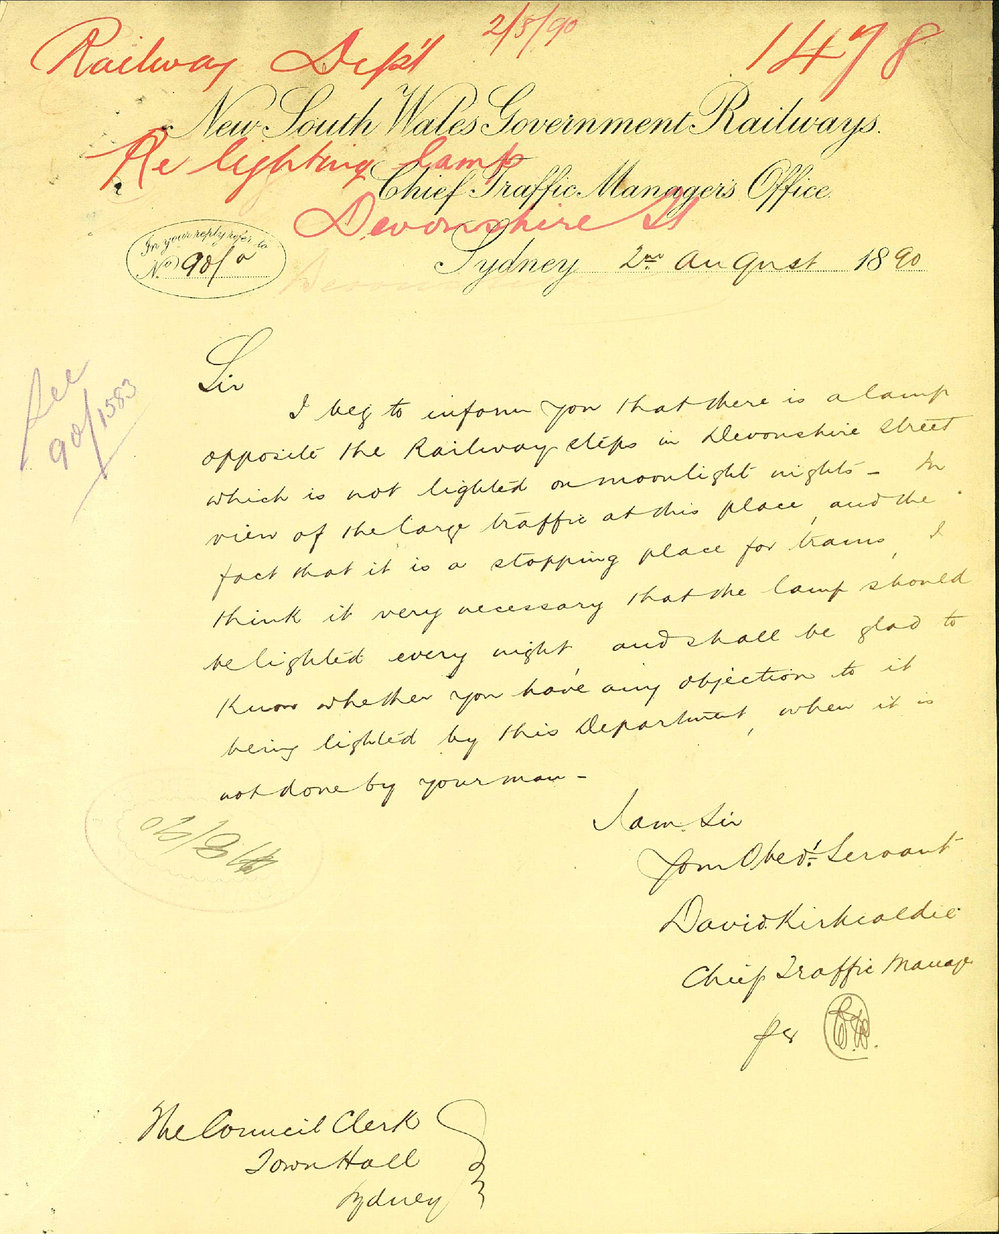 Railway Dep't 2/8/90 1478
New South Wales Government Railways.
Re lighting lamp
Chief Traffic Manager's Office.
Devonshire St
In your reply refer to
No. 90/
Sydney 2nd August 1890
See
90/1583
Sir
I beg to inform you that there is a lamp
opposite the Railway steps in Devonshire street
which is not lighted on moonlight nights - In
view of the large traffic at this place, and the
fact that it is a stopping place for trams, I
think it very necessary that the lamp should
be lighted every night, and shall be glad to
know whether you have any objection to it
being lighted by this Department, when it is
not done by your man -
I am Sir
Your Obedt. Servant
David Kirkcaldie
Chief Traffic Manager
per
The Council Clerk
Town Hall
Sydney